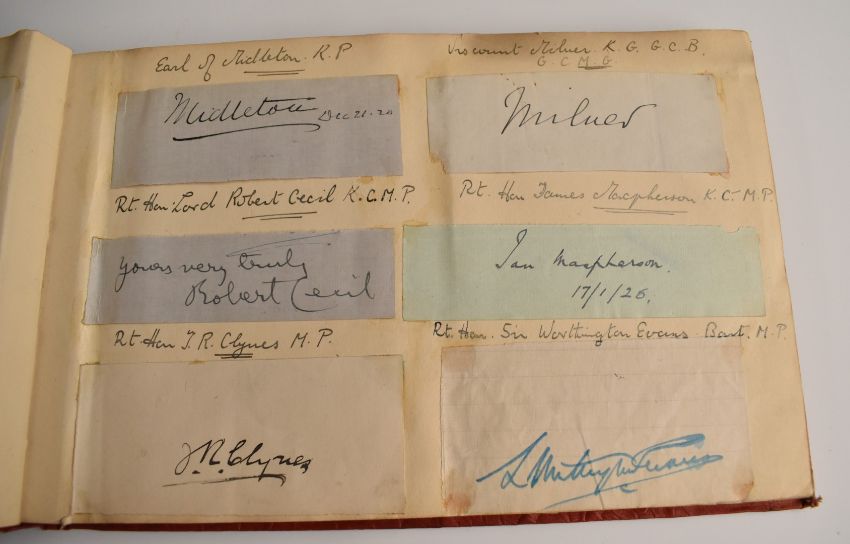 Earl of Midleton. K.P
Midleton Dec 21. 20
Viscount Milner. K.G. G.C.B.
G.C.M.G.
Milner
Rt. Hon: Lord Robert Cecil K.C.M.P.
yours very truly
Robert Cecil
Rt. Hon James Macpherson K.C. M.P.
Ian Macpherson.
17/1/26.
Rt Hon J.R. Clynes M.P.
J.R. Clynes
Rt. Hon. Sir Worthington Evans Bart. M.P.
L Worthington Evans